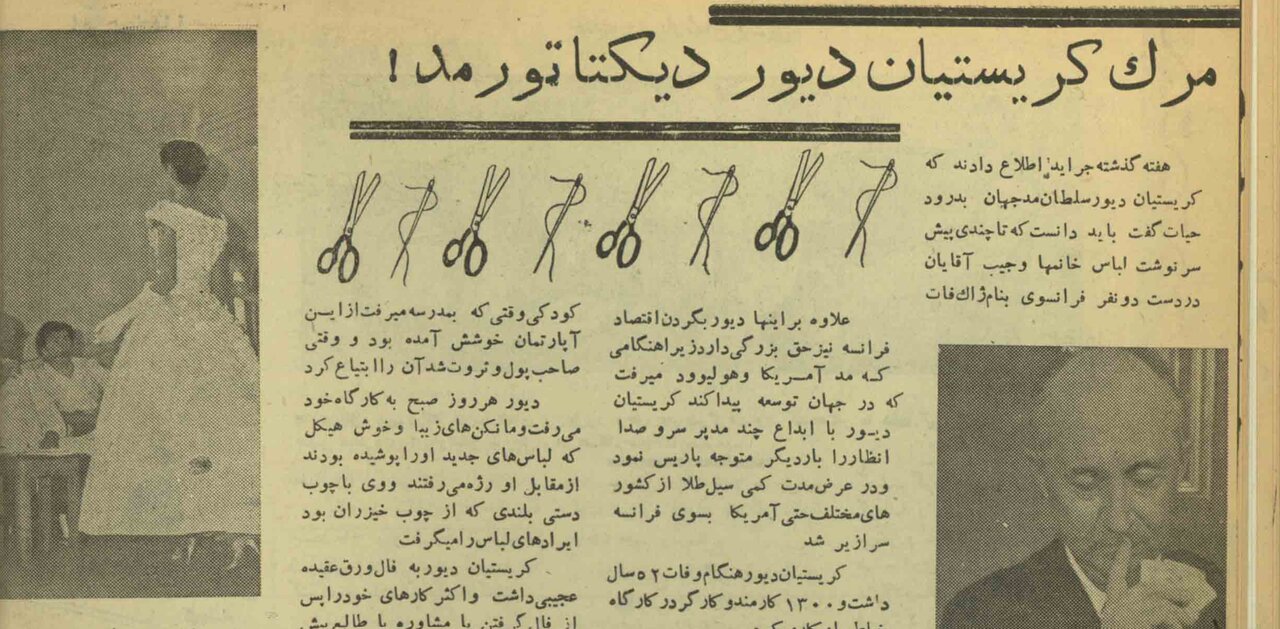 مرگ کریستیان دیور دیکتاتور مد!
هفته گذشته جراید اطلاع دادند که
کریستیان دیور سلطان مد جهان بدرود
حیات گفت باید دانست که تا چندی پیش
سرنوشت لباس خانمها و جیب آقایان
در دست دو نفر فرانسوی بنام ژاک فات
علاوه بر اینها دیور بگردن اقتصاد
فرانسه نیز حق بزرگی دارد زیرا هنگامی
که مد آمریکا و هولیوود میرفت
که در جهان توسعه پیدا کند کریستیان
دیور با ابداع چند مد پر سر و صدا
انظار را بار دیگر متوجه پاریس نمود
و در عرض مدت کمی سیل طلا از کشور
های مختلف حتی آمریکا بسوی فرانسه
سرازیر شد
کریستیان دیور هنگام وفات ۵۲ سال
داشت و ۱۳۰۰ کارمند و کارگر در کارگاه
کودکی وقتی که بمدرسه میرفت از ایسن
آپارتمان خوشش آمده بود و وقتی
صاحب پول و ثروت شد آن را ابتیاع کرد
دیور هر روز صبح به کارگاه خود
می‌رفت و مانکن‌های زیبا و خوش هیکل
که لباس‌های جدید او را پوشیده بودند
از مقابل او رژه می‌رفتند و وی با چوب
دستی بلندی که از چوب خیزران بود
ایرادهای لباس را میگرفت
کریستیان دیور به فال ورق عقیده
عجیبی داشت و اکثر کارهای خود را پس
از فال گرفتن یا مشاوره با طالع بیش